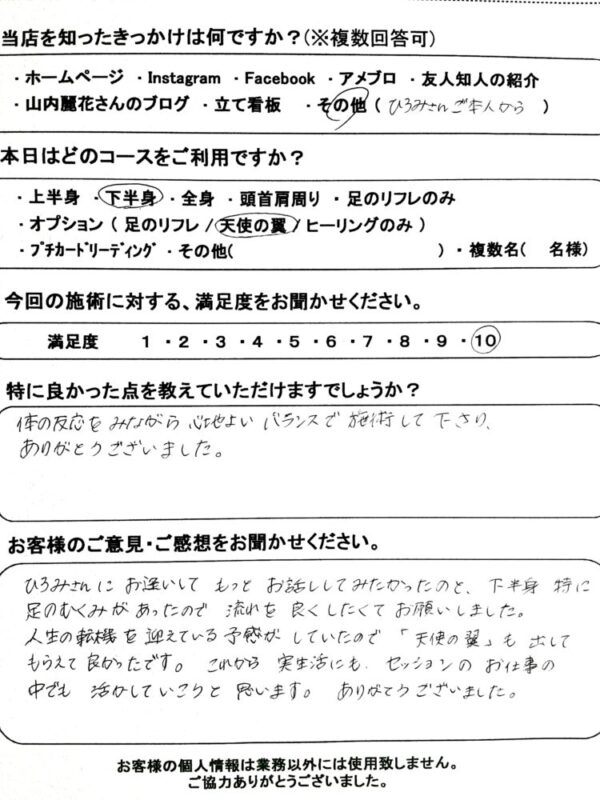 当店を知ったきっかけは何ですか?(※複数回答可)
・ホームページ ・Instagram ・Facebook ・アメブロ ・友人知人の紹介
・山内麗花さんのブログ ・立て看板 ・その他 ( ひろみさんご本人から )
本日はどのコースをご利用ですか?
・上半身 ・下半身 ・全身 ・頭首肩周り ・足のリフレのみ
・オプション ( 足のリフレ / 天使の翼 / ヒーリングのみ )
・プチカードリーディング ・その他( ) ・複数名( 名様)
今回の施術に対する、満足度をお聞かせください。
満足度 1 ・2 ・3 ・4 ・5 ・6 ・7 ・8 ・9 ・10
特に良かった点を教えていただけますでしょうか?
体の反応をみながら 心地よい バランスで 施術して 下さり、
ありがとうございました。
お客様のご意見・ご感想をお聞かせください。
ひろみさんに お逢いして もっと お話ししてみたかったのと、下半身 特に
足のむくみが あったので 流れを 良くしたくて お願いしました。
人生の転機を 迎えている 予感が していたので 「天使の翼」も 出して
もらえて 良かったです。 これから 実生活にも、セッションの お仕事の
中でも 活かしていこうと 思います。 ありがとうございました。
お客様の個人情報は業務以外には使用致しません。
ご協力ありがとうございました。